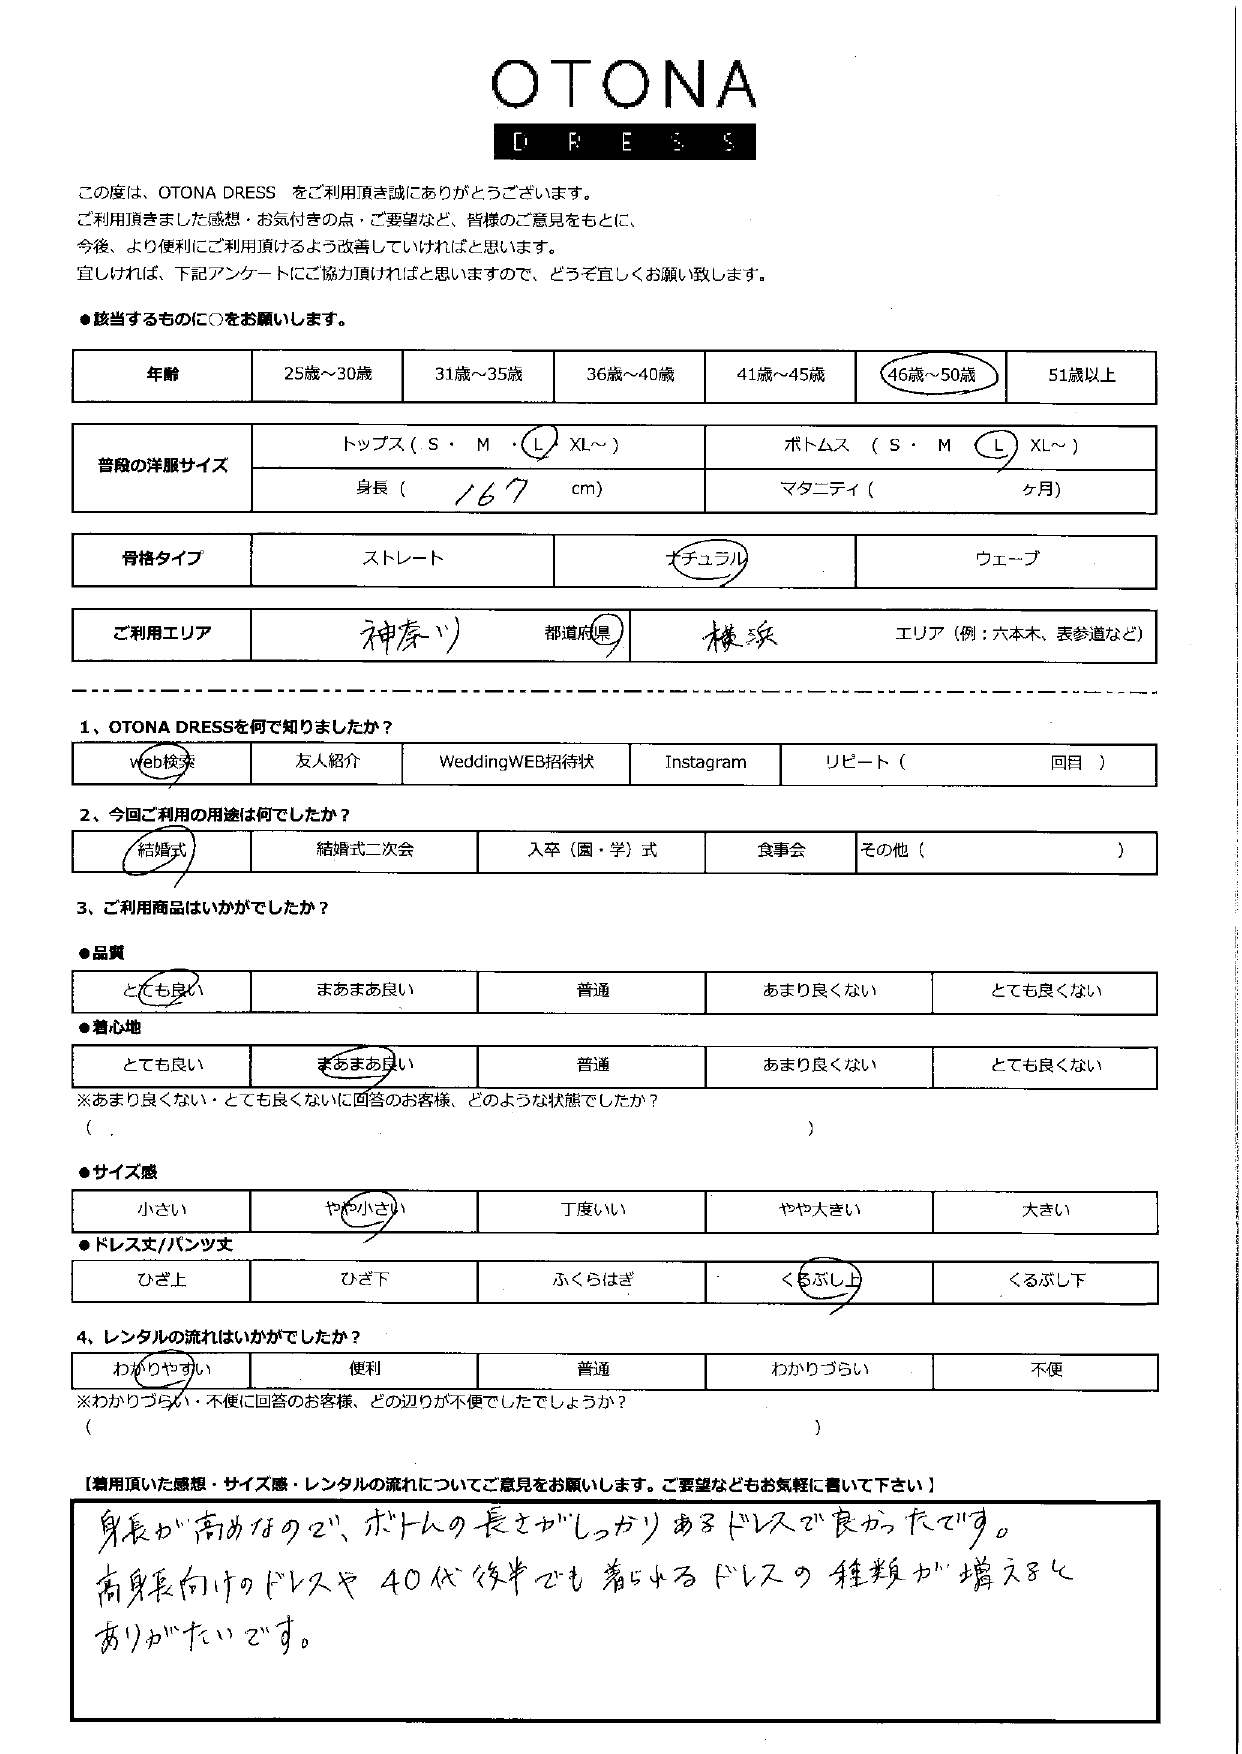 OTONA
DRESS
この度は、OTONA DRESS　をご利用頂き誠にありがとうございます。
ご利用頂きました感想・お気付きの点・ご要望など、皆様のご意見をもとに、
今後、より便利にご利用頂けるよう改善していければと思います。
宜しければ、下記アンケートにご協力頂ければと思いますので、どうぞ宜しくお願い致します。
●該当するものに○をお願いします。
年齢 25歳～30歳 31歳～35歳 36歳～40歳 41歳～45歳 46歳～50歳 51歳以上
普段の洋服サイズ トップス ( S ・ M ・ L ・ XL～ ) ボトムス ( S ・ M L XL～ )
身長 ( 167 cm) マタニティ ( ヶ月)
骨格タイプ ストレート ナチュラル ウェーブ
ご利用エリア 神奈川 都道府県 横浜 エリア（例：六本木、表参道など）
1、OTONA DRESSを何で知りましたか？
web検索 友人紹介 WeddingWEB招待状 Instagram リピート（ 回目 ）
2、今回ご利用の用途は何でしたか？
結婚式 結婚式二次会 入卒（園・学）式 食事会 その他（ ）
3、ご利用商品はいかがでしたか？
●品質
とても良い まあまあ良い 普通 あまり良くない とても良くない
●着心地
とても良い まあまあ良い 普通 あまり良くない とても良くない
※あまり良くない・とても良くないに回答のお客様、どのような状態でしたか？
（ ）
●サイズ感
小さい やや小さい 丁度いい やや大きい 大きい
●ドレス丈/パンツ丈
ひざ上 ひざ下 ふくらはぎ くるぶし上 くるぶし下
4、レンタルの流れはいかがでしたか？
わかりやすい 便利 普通 わかりづらい 不便
※わかりづらい・不便に回答のお客様、どの辺りが不便でしたでしょうか？
（ ）
【着用頂いた感想・サイズ感・レンタルの流れについてご意見をお願いします。ご要望などもお気軽に書いて下さい】
身長が高めなので、ボトムの長さがしっかりあるドレスで良かったです。
高身長向けのドレスや 40代後半でも着られるドレスの種類が増えると
ありがたいです。